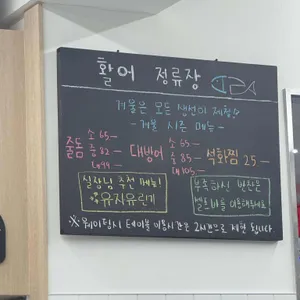 활어 정류장
겨울은 모든 생선이 제철!
- 겨울 시즌 메뉴 -
줄돔 소 65- 중 82- 대 99-
대방어 소 55- 중 85- 대 105-
석화찜 25-
실장님 추천 메뉴!
유자유린기
부족하신 반찬은
셀프바를 이용해주세요
※ 웨이팅시 테이블 이용시간은 2시간으로 제한 됩니다